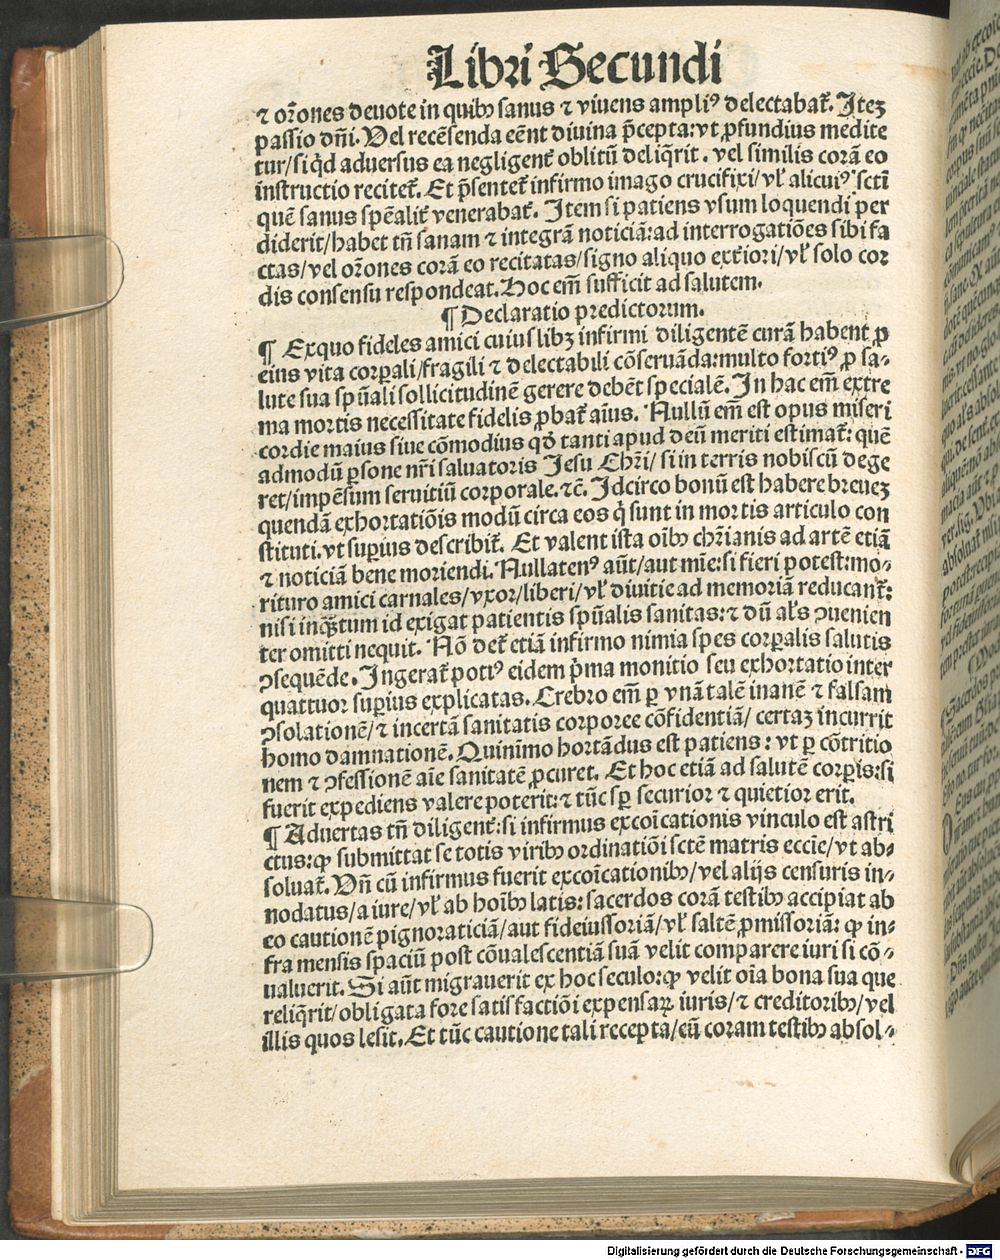 Libri Secundi
⁊ or̃ones deuote in quibꝫ sanus ⁊ viuens ampliꝰ delectabat̃. Itez
passio dñi. Vel recẽsenda eẽnt diuina p̃cepta: vt ꝓfundius medite
tur/si qͥd aduersus ea negligent̃ oblitũ deliq̃rit. vel similis corã eo
instructio recitet̃. Et p̃sentet̃ infirmo imago crucifixi/vl̕ alicuiꝰ scti
quẽ sanus spẽalit̃ venerabat̃. Item si patiens vsum loquendi per
diderit/habet tñ sanam ⁊ integrã noticiã: ad interrogatiões sibi fa
ctas/vel or̃ones corã eo recitatas/signo aliquo ext̃iori/vl̕ solo cor
dis consensu respondeat. Hoc em̃ sufficit ad salutem.
¶ Declaratio predictorum.
¶ Exquo fideles amici cuiuslibꝫ infirmi diligentẽ curã habent ꝓ
eius vita corꝑali/fragili ⁊ delectabili cõseruãda: multo fortiꝰ ꝓ sa-
lute sua spũali sollicitudinẽ gerere debẽt specialẽ. In hac em̃ extre
ma mortis necessitate fidelis ꝓbat̃ aĩus. Nullũ em̃ est opus miseri
cordie maius siue cõmodius qd̕ tanti apud deũ meriti estimat̃: quẽ
admodũ ꝑsone nr̃i saluatoris Jesu Chr̃i/si in terris nobiscũ dege
ret/impẽsum seruitiũ corporale. ⁊c̃. Idcirco bonũ est habere breuez
quendã exhortatiõis modũ circa eos q̇ sunt in mortis articulo con
stituti. vt suꝑius describit̃. Et valent ista oĩbꝫ chr̃ianis ad artẽ etiã
⁊ noticiã bene moriendi. Nullatenꝰ aũt/aut mĩe: si fieri potest: mo-
rituro amici carnales/vxor/liberi/vl̕ diuitie ad memoriã reducant̃:
nisi inq̃ꝫtum id exigat patientis spũalis sanitas: ⁊ dũ al̕s ꝯuenien
ter omitti nequit. Nõ det̃ etiã infirmo nimia spes corꝑalis salutis
ꝯsequẽde. Ingerat̃ potiꝰ eidem p̃ma monitio seu exhortatio inter
quattuor suꝑius explicatas. Crebro em̃ ꝑ vnã talẽ inanẽ ⁊ falsam
ꝯsolationẽ/⁊ incertã sanitatis corporee cõfidentiã/certaz incurrit
homo damnationẽ. Quinĩmo hortãdus est patiens: vt ꝑ cõtritio
nem ⁊ ꝯfessionẽ aĩe sanitatẽ ꝓcuret. Et hoc etiã ad salutẽ corꝑis: si
fuerit expediens valere poterit: ⁊ tũc sꝑ securior ⁊ quietior erit.
¶ Aduertas tñ diligent̃: si infirmus excoĩcationis vinculo est astri
ctus: ꝙ submittat se totis viribꝫ ordinatiõi sctẽ matris eccĩe/vt ab-
soluat̃. Vñ cũ infirmus fuerit excoĩcationibꝫ/vel alijs censuris in-
nodatus/a iure/vl̕ ab hoĩbꝫ latis: sacerdos corã testibꝫ accipiat ab
eo cautionẽ pignoraticiã/aut fideiussoriã/vl̕ saltẽ ꝓmissoriã: ꝙ in-
fra mensis spaciũ post cõualescentiã suã velit comparere iuri si cõ-
ualuerit. Si aũt migrauerit ex hoc seculo: ꝙ velit oĩa bona sua que
reliq̃rit/obligata fore satisfactiõi expensaꝝ iuris/⁊ creditoribꝫ/vel
illis quos lesit. Et tũc cautione tali recepta/eũ coram testibꝫ absol-
Digitalisierung gefördert durch die Deutsche Forschungsgemeinschaft - DFG